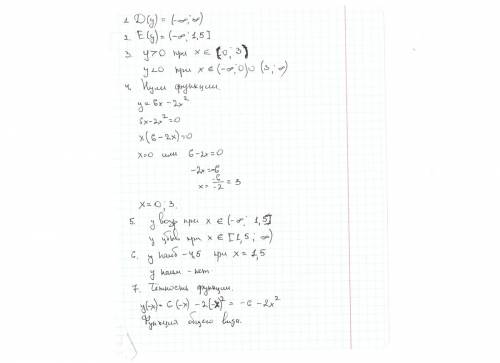 1. D(y) = (-∞; ∞)
2. E(y) = (-∞; 1,5]
3. y>0 при x ∈ (0; 3)
y<0 при x ∈ (-∞; 0) ∪ (3; ∞)
4. Нули функции.
y = 6x - 2x²
6x - 2x² = 0
x(6 - 2x) = 0
x=0 или 6 - 2x = 0
-2x = -6
x = -6/-2 = 3
x = 0; 3.
5. y возр при x ∈ (-∞; 1,5]
y убыв при x ∈ [1,5; ∞)
6. y наиб - 4,5 при x = 1,5
y наим - нет
7. Четность функции.
y(-x) = 6(-x) - 2(-x)² = -6 - 2x²
Функция общего вида.